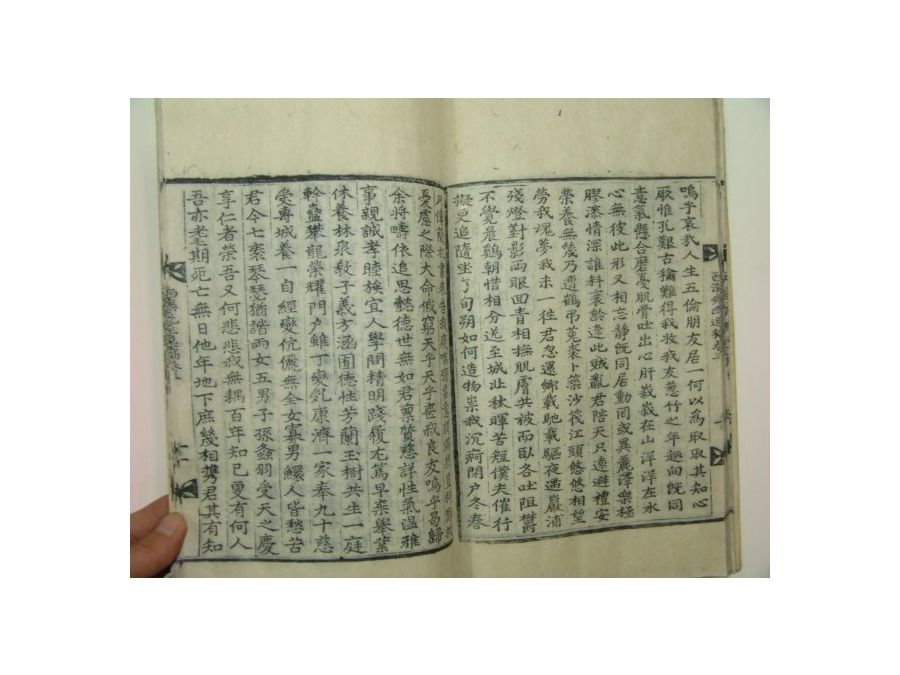 嗚乎哀我人生五倫朋友居一何以為取取其知心
厥惟孔艱古猶難得我收我友葱竹之年趣向旣同
意氣懸合磨憂肌骨吐出心肝峩峩在山洋洋在水
心無彼此形又相忘靜旣同居動罔或異麗澤樂極
膠漆情深誰料衰齡逢此賊亂君陪天只遠避禮安
榮養無幾乃遭鶴弔菟裘卜築沙筏江頭悠悠相望
勞我魂夢我未一徃君忽還鄕載馳載驅夜過巖浦
殘燈對影兩眼回青相撫肌膚共被而臥各吐阻欝
不覺晨鷄朝惜相分送至城址秋暉苦短僕夫催行
擬更追隨坐了旬朔如何造物祟我沉痾閉户冬春
憂慮之際大命俄窮天乎天乎喪我良友嗚乎曷歸
余將疇依追思懿德世無如君禀質慈詳性氣温雅
事親誠孝睦族宜人學問精明踐履尤篤早棄舉業
休養林泉敎子義方涵囿德性芳蘭玉樹共生一庭
幹蠱攀龍榮耀門户雖丁變亂康濟一家奉九十慈
愛專城養一自經變伉儷無全女寡男鰥人皆愁苦
君今七袠琴瑟猶諧兩女五男子孫螽羽受天之慶
享仁者榮吾又何悲悲我無耦百年知已更有何人
吾亦耄期死亡無日他年地下庶幾相携君其有知